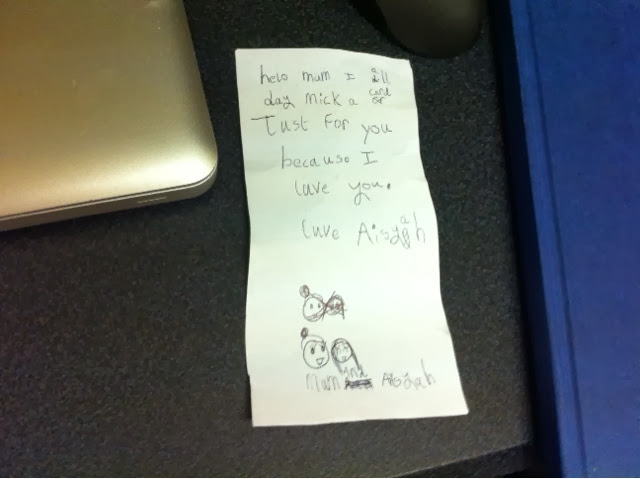 helo mum I all
day mick a card
Tust for you
because I
luve you.
luve Aisyah
mum and Aisyah